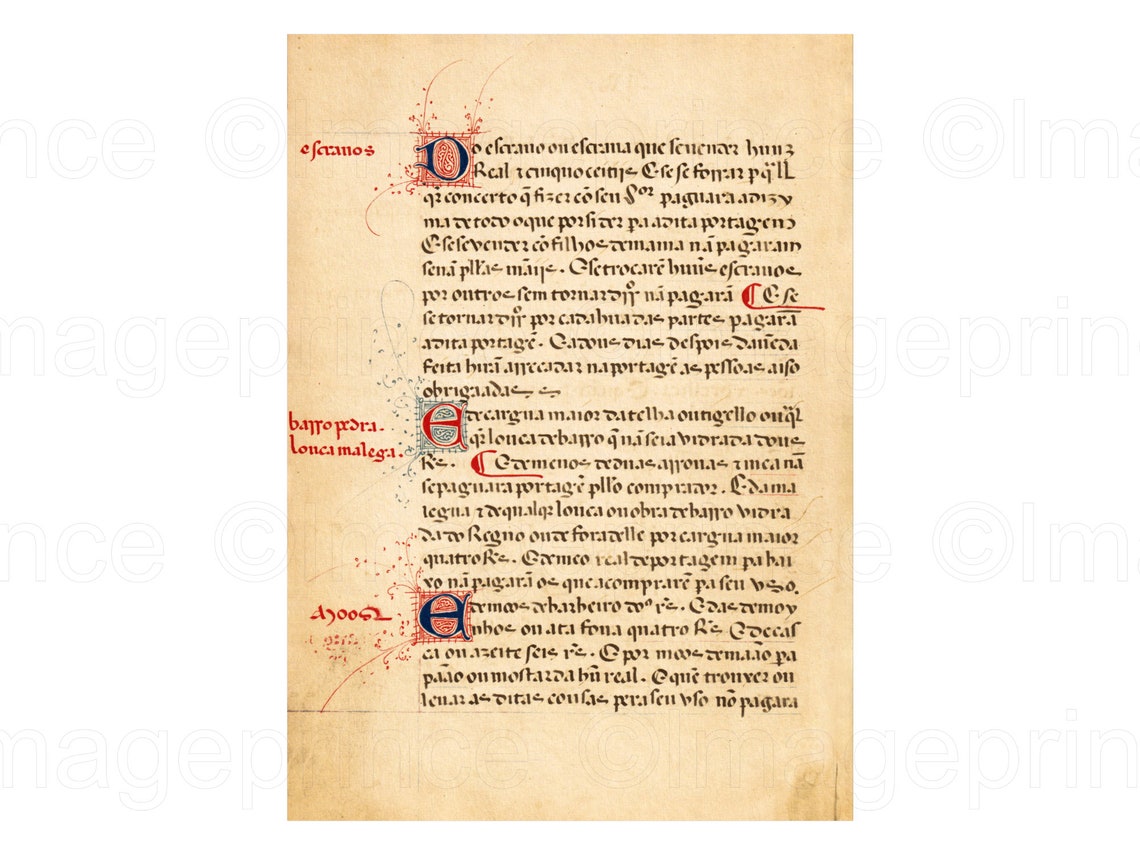 escrauos
Do escrauo ou escraua que se vender huũ
Real ⁊ cinquo ceitijs E se se forrar p q̄ll
q̄r concerto q̄ fizer cõ seu Sor paguara a diz
ma de todo o que por si der pa a dita portagem
E se se vender cõ filhos de mama nã pagaram
senã pllas mãijs . E se trocarẽ huũs escrauos
por outros sem tornar drº nã pagarã ¶ E se
se tornar drº por cada hua das partes pagarã
a dita portagẽ . E a dous dias despois da vẽda
feita hirã arrecadar na portagẽ as pessoas a iso
obrigaadas
barro pedra .
louca malega .
E de cargua maior da telha ou tigello ou q̄l
q̄r louca de barro q̄ nã seia vidrada dous
Rs . ¶ E de menos de duas arrouas ⁊ mea nã
se paguara portagẽ pllo comprador . E da ma
legua ⁊ de qualq̄r louca ou obra de barro vidra
da do Regno ou de fora delle por cargua maior
quatro Rs . E de meo real de portagem pa bai
xo nã pagarã os que a comprarẽ pa seu vso .
Moos
E de moos de barbeiro dous rs . E das de moy
nhos ou atafona quatro Rs E de cas
ca ou azeite seis rs . E por moos de mão pa
pão ou mostarda hũ real . E quẽ trouxer ou
leuar as ditas cousas pera seu vso não pagara